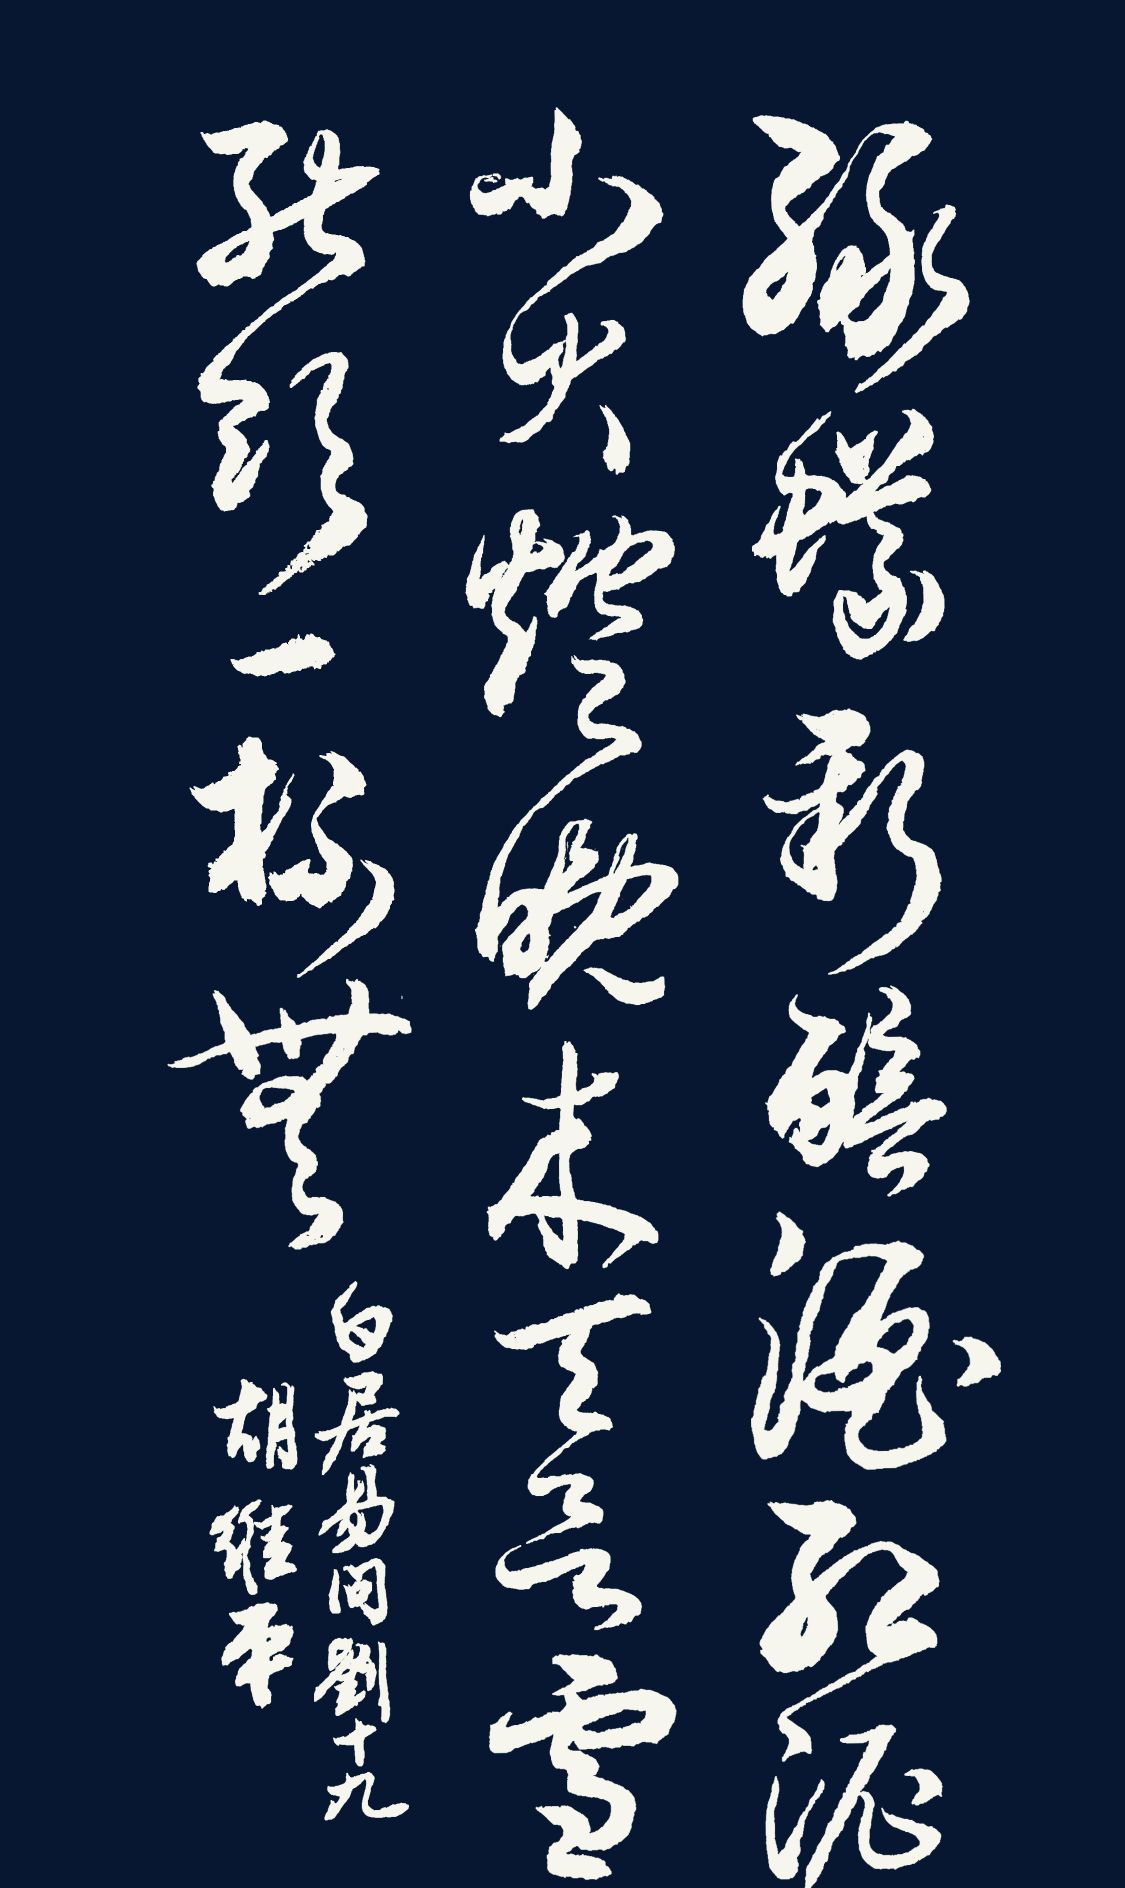 綠蟻新醅酒紅泥
小火爐晚来天欲雪
能飲一杯無
白居易问劉十九
胡維平